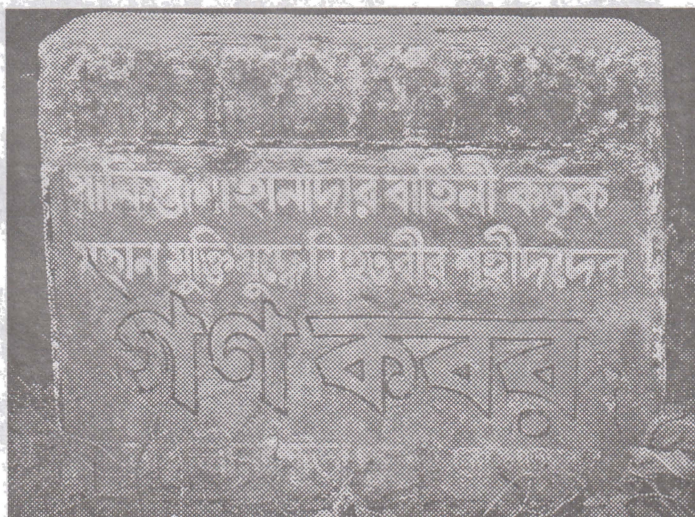 পাকিস্তানী হানাদার বাহিনী কর্তৃক
মহান মুক্তিযুদ্ধে নিহত বীর শহীদদের
গণ কবর